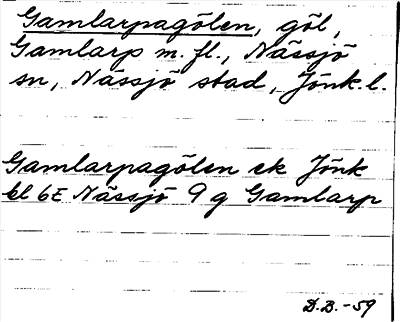 Gamlarpagölen, göl,
Gamlarp m. fl., Nässjö
sn, Nässjö stad, Jönk. l.
Gamlarpagölen ek Jönk
bl 6E Nässjö 9 g Gamlarp
D.B.-59